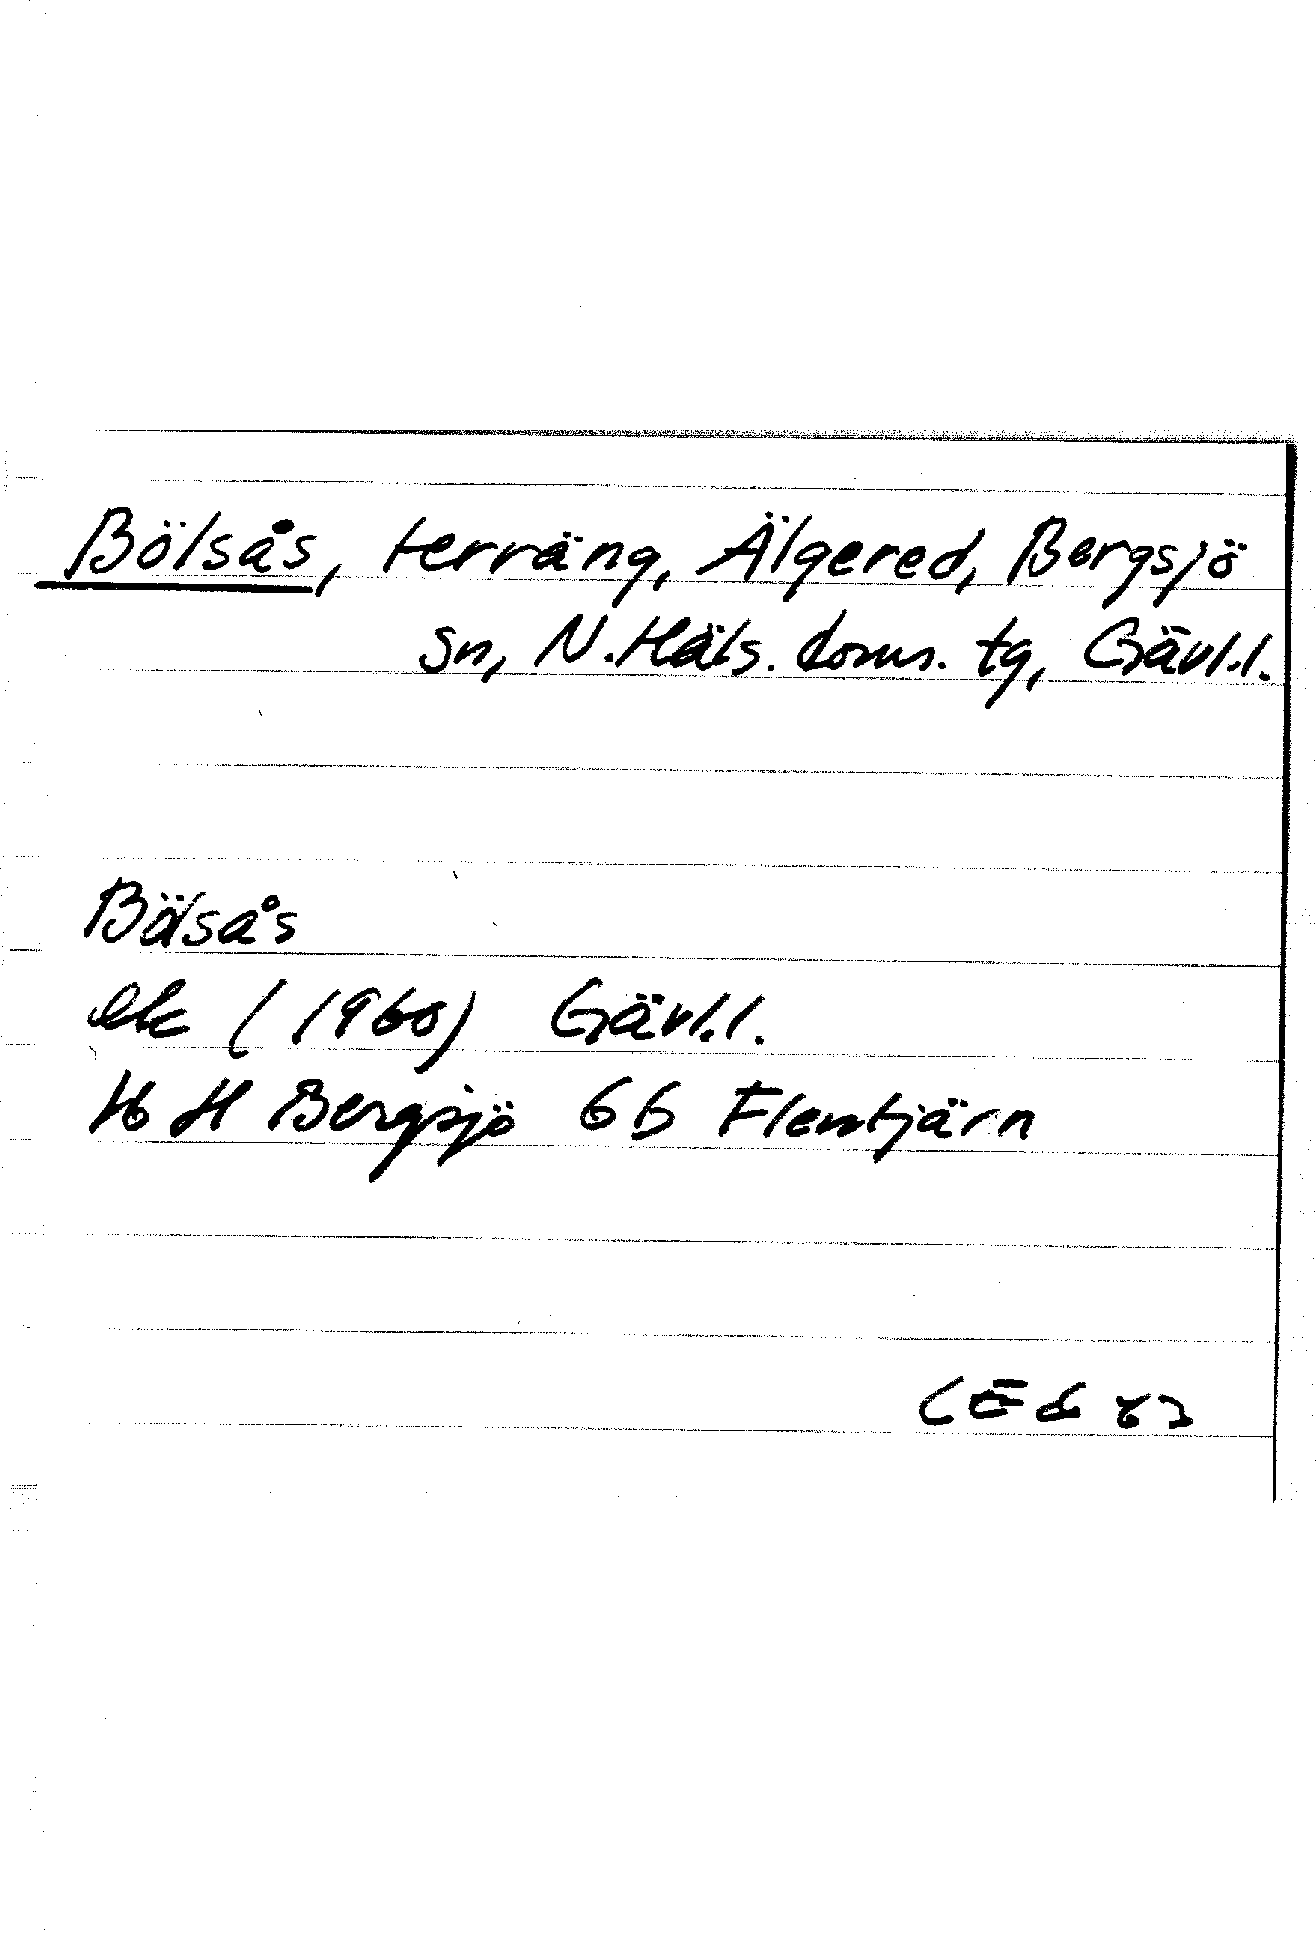 Bölsås, terräng, Älgered, Bergsjö
sn, N. Häls. doms. tg, Gävl.l.
Bölsås
ek (1960) Gävl.l.
16 H Bergsjö 6b Flentjärn
CEd 83